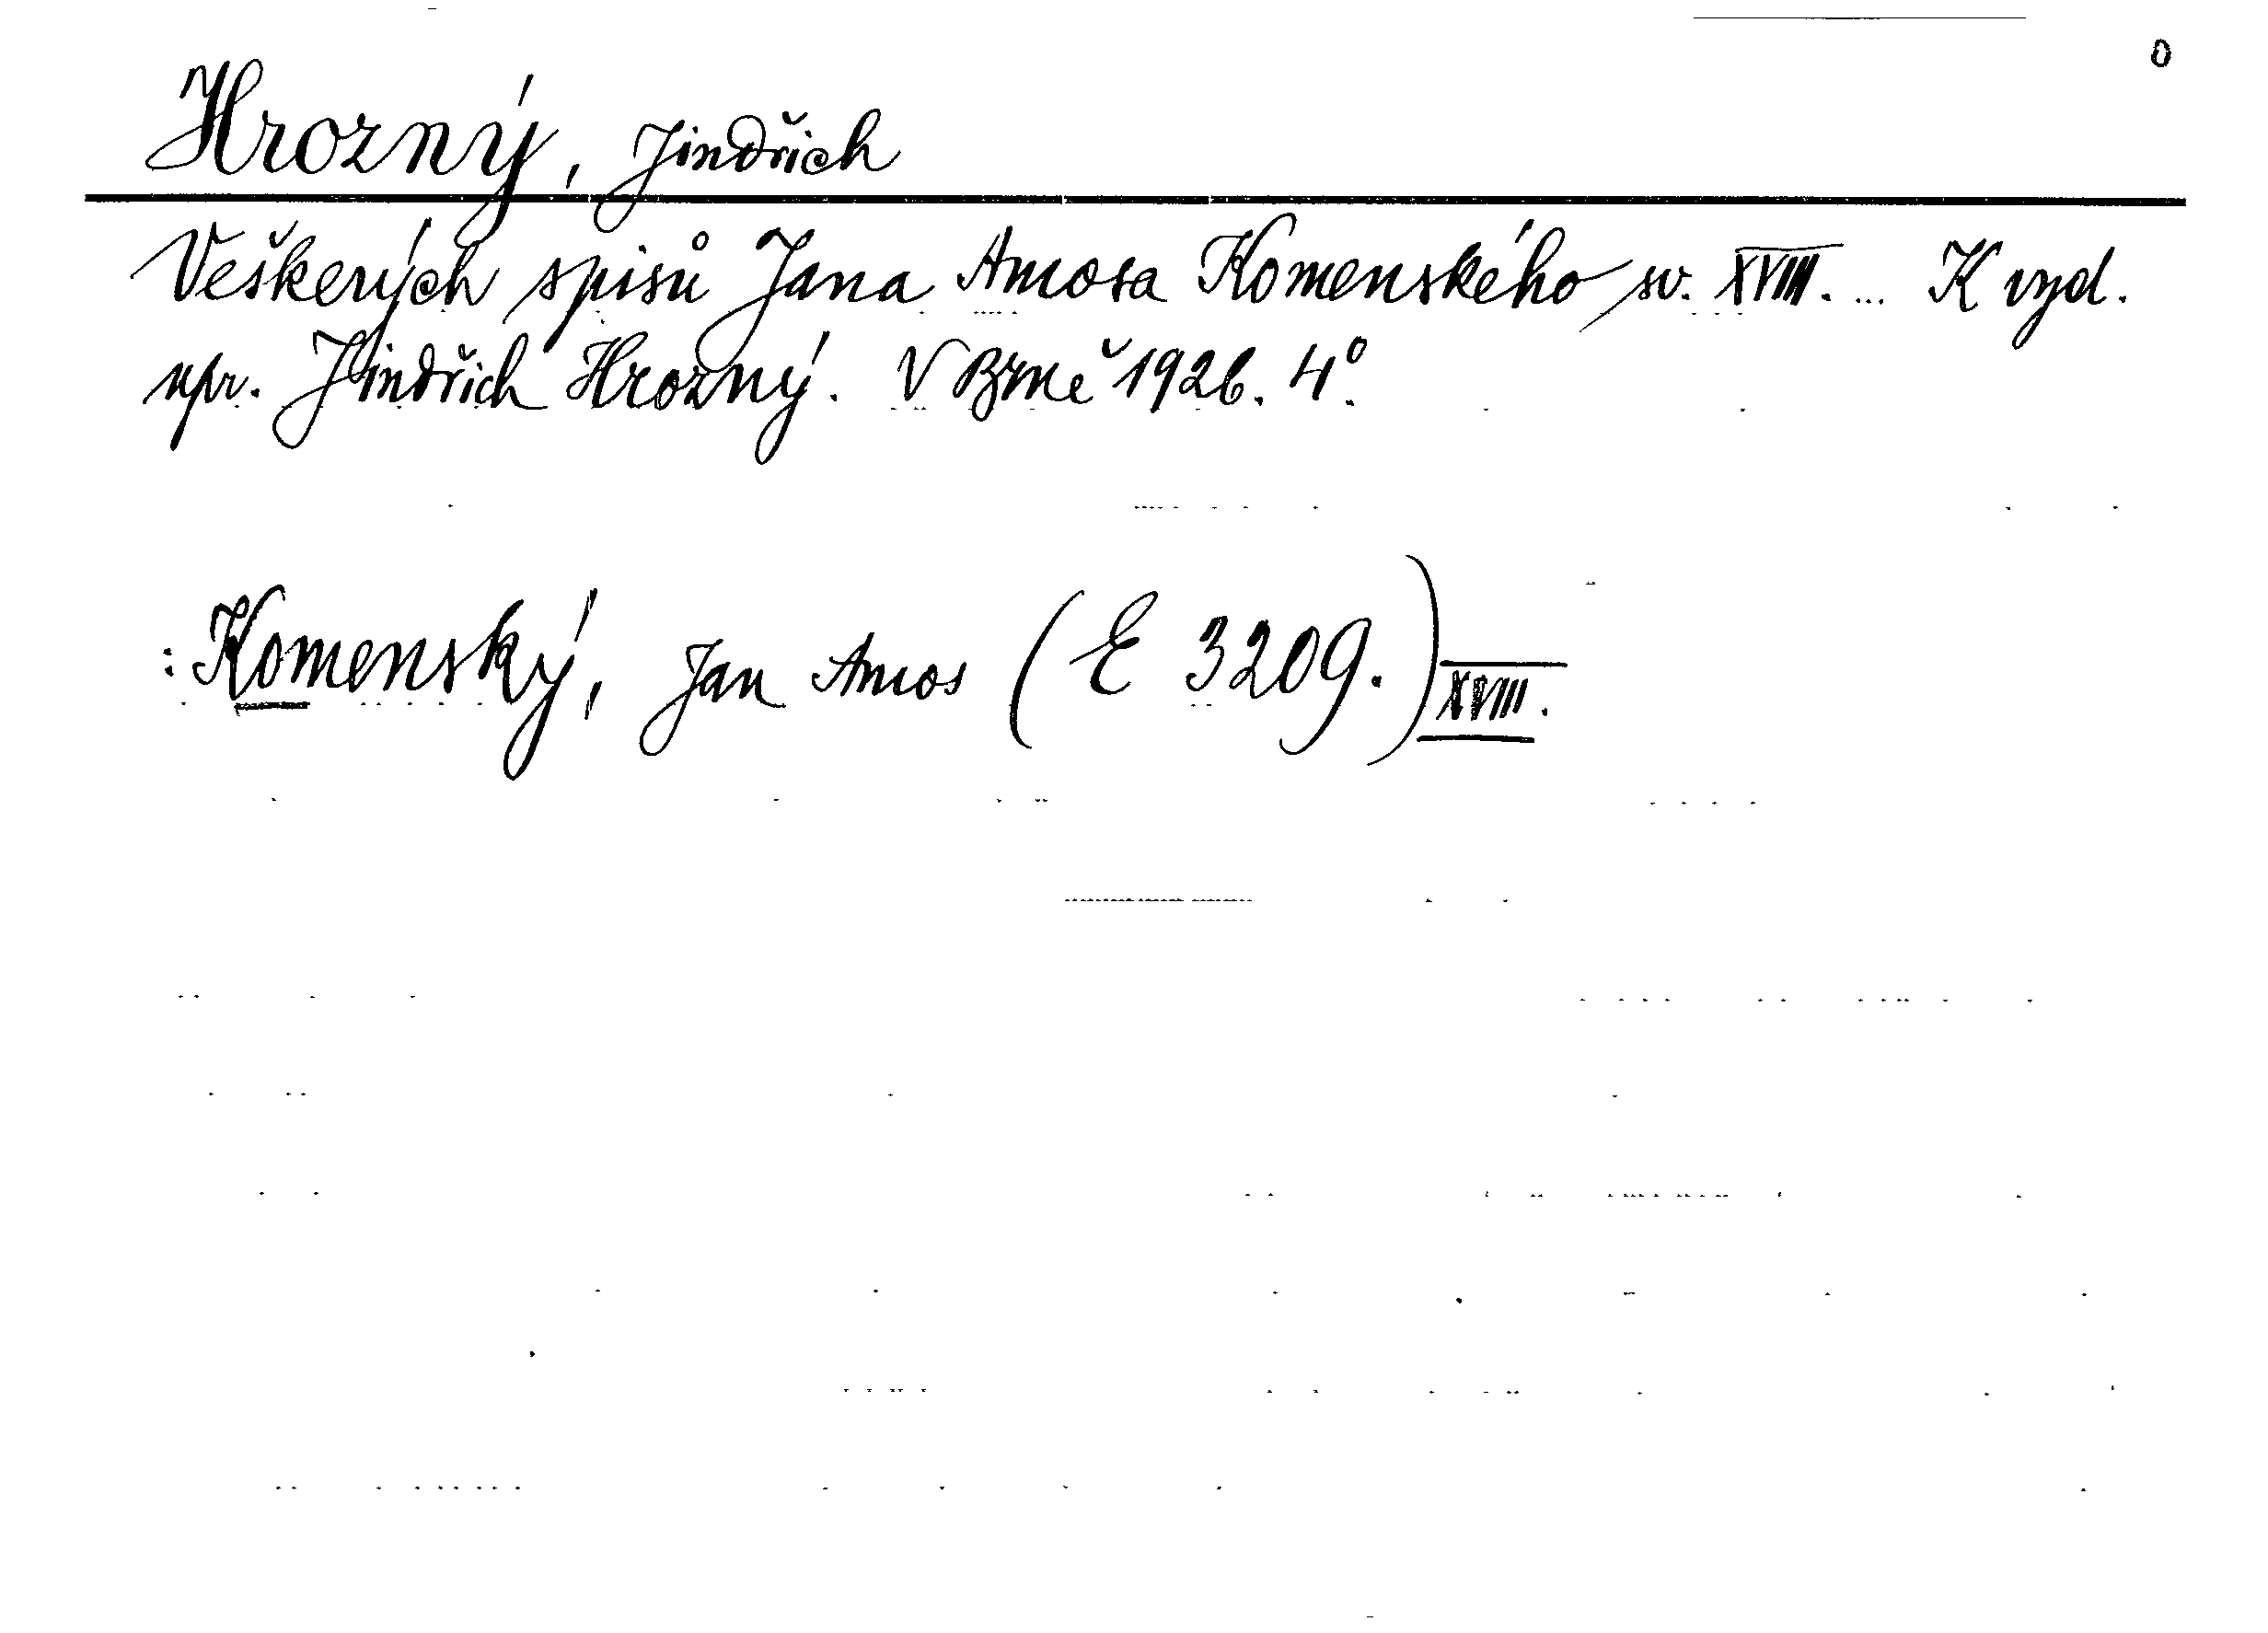 0
Hrozný, Jindřich
Veškerých spisů Jana Amosa Komenského sv. XVIII. ... K vyd.
upr. Jindřich Hrozný. V Brně 1926. 4°.
: Komenský, Jan Amos (E 3209.) XVIII.